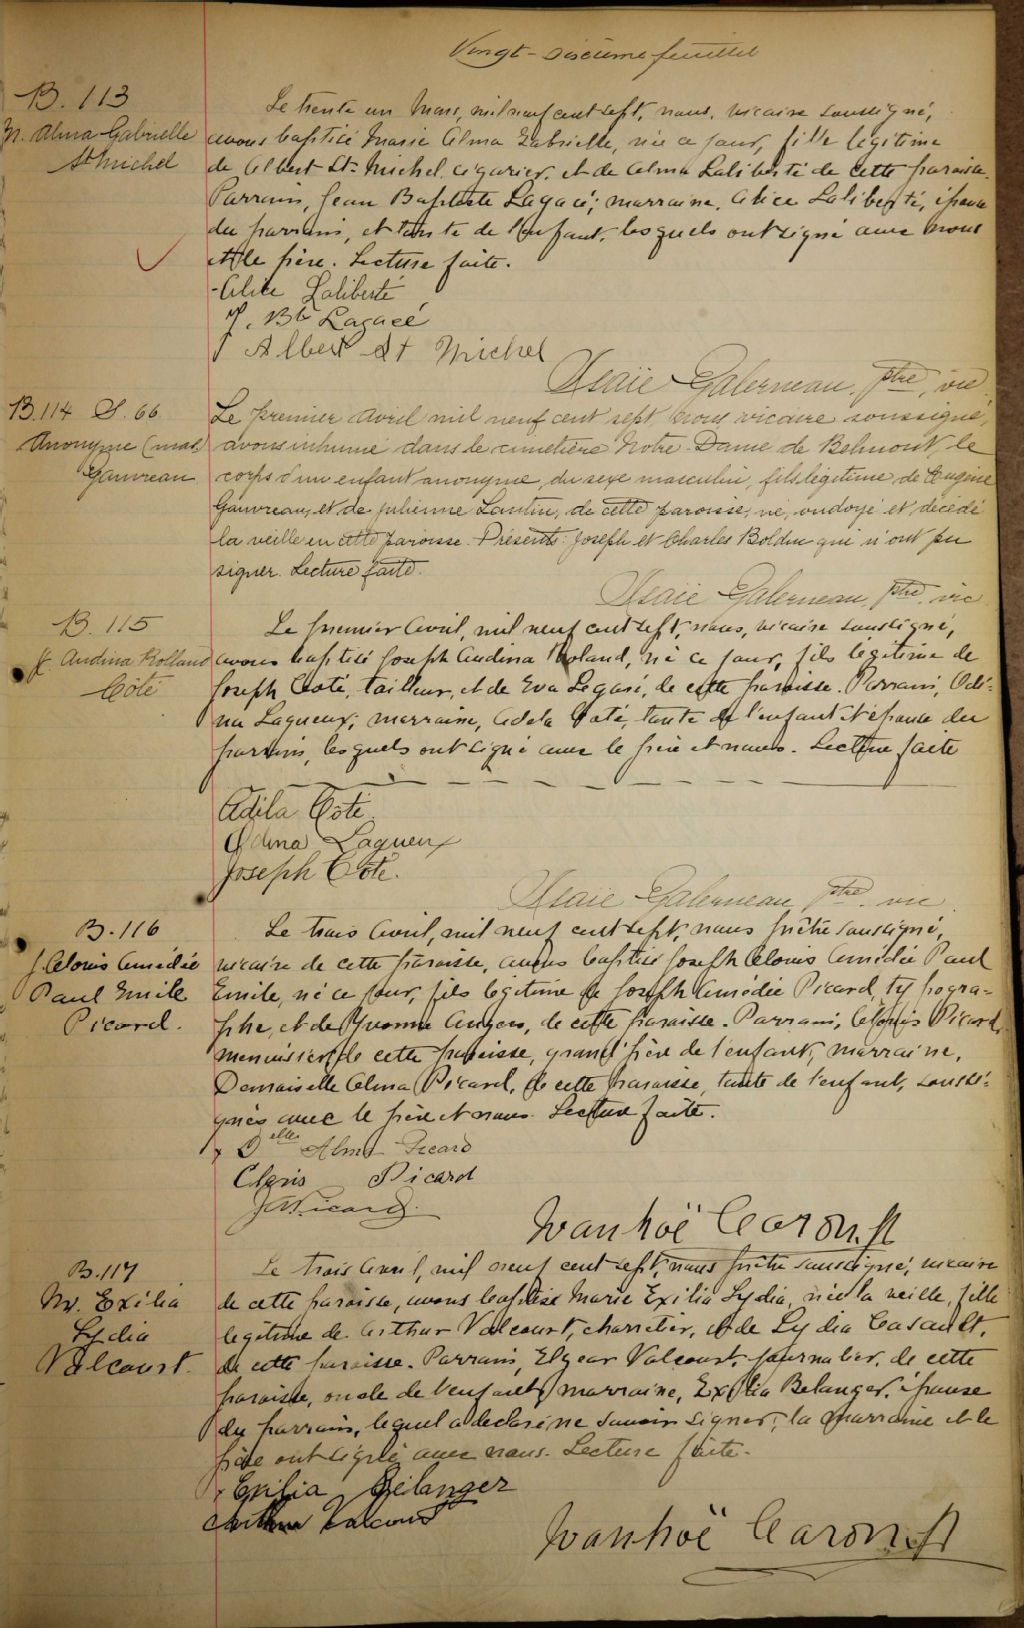 Vingt-sixième feuillet
B. 113
M. Alma Gabrielle
St Michel
Le trente un Mars, mil neuf cent sept, nous, vicaire soussigné,
avons baptisé Marie Alma Gabrielle, née ce jour, fille légitime
de Albert St-Michel, cigarier, et de Alma Laliberté de cette paroisse.
Parrain, Jean Baptiste Lagacé; marraine, Alice Laliberté, épouse
du parrain, et tante de l'enfant, lesquels ont signé avec nous
et le père. Lecture faite.
Alice Laliberté
J. Bte Lagacé
Albert St Michel
Isaïe Galerneau, ptre, vic
B. 114 S. 66
Anonyme (mas)
Gauvreau
Le premier avril mil neuf cent sept, nous, vicaire soussigné,
avons inhumé dans le cimetière Notre-Dame de Belmont, le
corps d'un enfant anonyme, du sexe masculin, fils légitime de Eugène
Gauvreau, et de Julienne Lantin, de cette paroisse, né, ondoyé et décédé
la veille en cette paroisse. Présents: Joseph et Charles Bolduc qui n'ont pu
signer. Lecture faite.
Isaïe Galerneau, ptre, vic
B. 115
J. Audina Rolland
Côté
Le premier Avril, mil neuf cent sept, nous, vicaire soussigné,
avons baptisé Joseph Audina Roland, né ce jour, fils légitime de
Joseph Coté, tailleur, et de Eva Legaré, de cette paroisse. Parrain, Odi-
na Lagueux; marraine, Adela Coté, tante de l'enfant et épouse du
parrain, lesquels ont signé avec le père et nous. Lecture faite
Adila Côté
Odina Lagueux
Joseph Côté.
Isaïe Galerneau, ptre, vic
B. 116
J. Cléonis Amédée
Paul Emile
Picard.
Le trois Avril, mil neuf cent sept, nous prêtre soussigné,
vicaire de cette paroisse, avons baptisé Joseph Cléonis Amédée Paul
Emile, né ce jour, fils légitime de Joseph Amédée Picard, typogra-
phe, et de Yvonne Angers, de cette paroisse. Parrain, Cléonis Picard,
menuisier, de cette paroisse, grand'père de l'enfant, marraine,
Demoiselle Alma Picard, de cette paroisse, tante de l'enfant, soussi-
gnés avec le père et nous. Lecture faite.
Delle Alma Picard
Picard
Picard
Ivanhoë Caron, pt
B. 117
M. Exilia
Lydia
Valcourt.
Le trois Avril, mil neuf cent sept, nous prêtre soussigné, vicaire
de cette paroisse, avons baptisé Marie Exilia Lydia, née la veille, fille
légitime de Arthur Valcourt, charretier, et de Lydia Casault,
de cette paroisse. Parrain, Elzear Valcourt, journalier, de cette
paroisse, oncle de l'enfant, marraine, Exilia Belanger, épouse
du parrain, lequel a déclaré ne savoir signer; la marraine et le
père ont signé avec nous. Lecture faite.
Exilia Bélanger
Arthur Valcourt
Ivanhoë Caron, pt